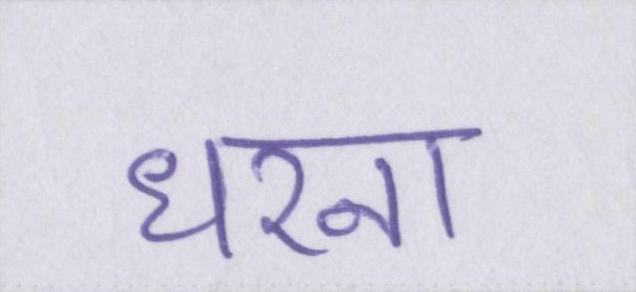 धरना